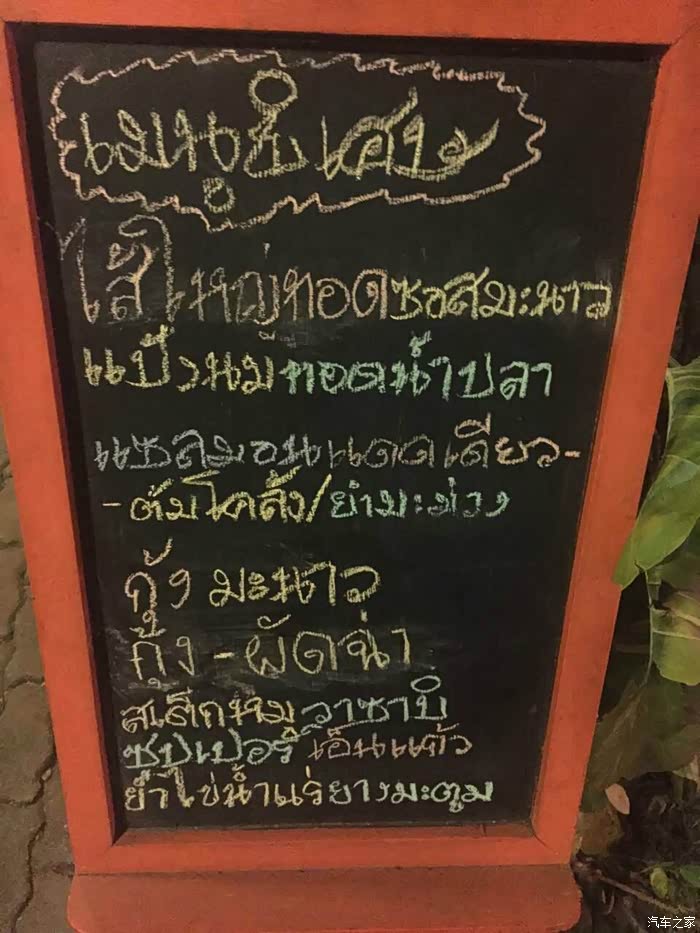 เมนูขิเศษ
ไส้ใหญ่ทอดซอสมะนาว
แป้งนมทอดน้ำปลา
แซลมอนแดดเดียว-
-ต้มโคล้ง/ยำมะม่วง
กุ้งมะนาว
กุ้ง-ผัดฉ่า
สเต็กหมูวาซาบิ
ซุปเปอร์เอ็นแก้ว
ยำไข่น้ำแร่ยางมะตูม
汽车之家